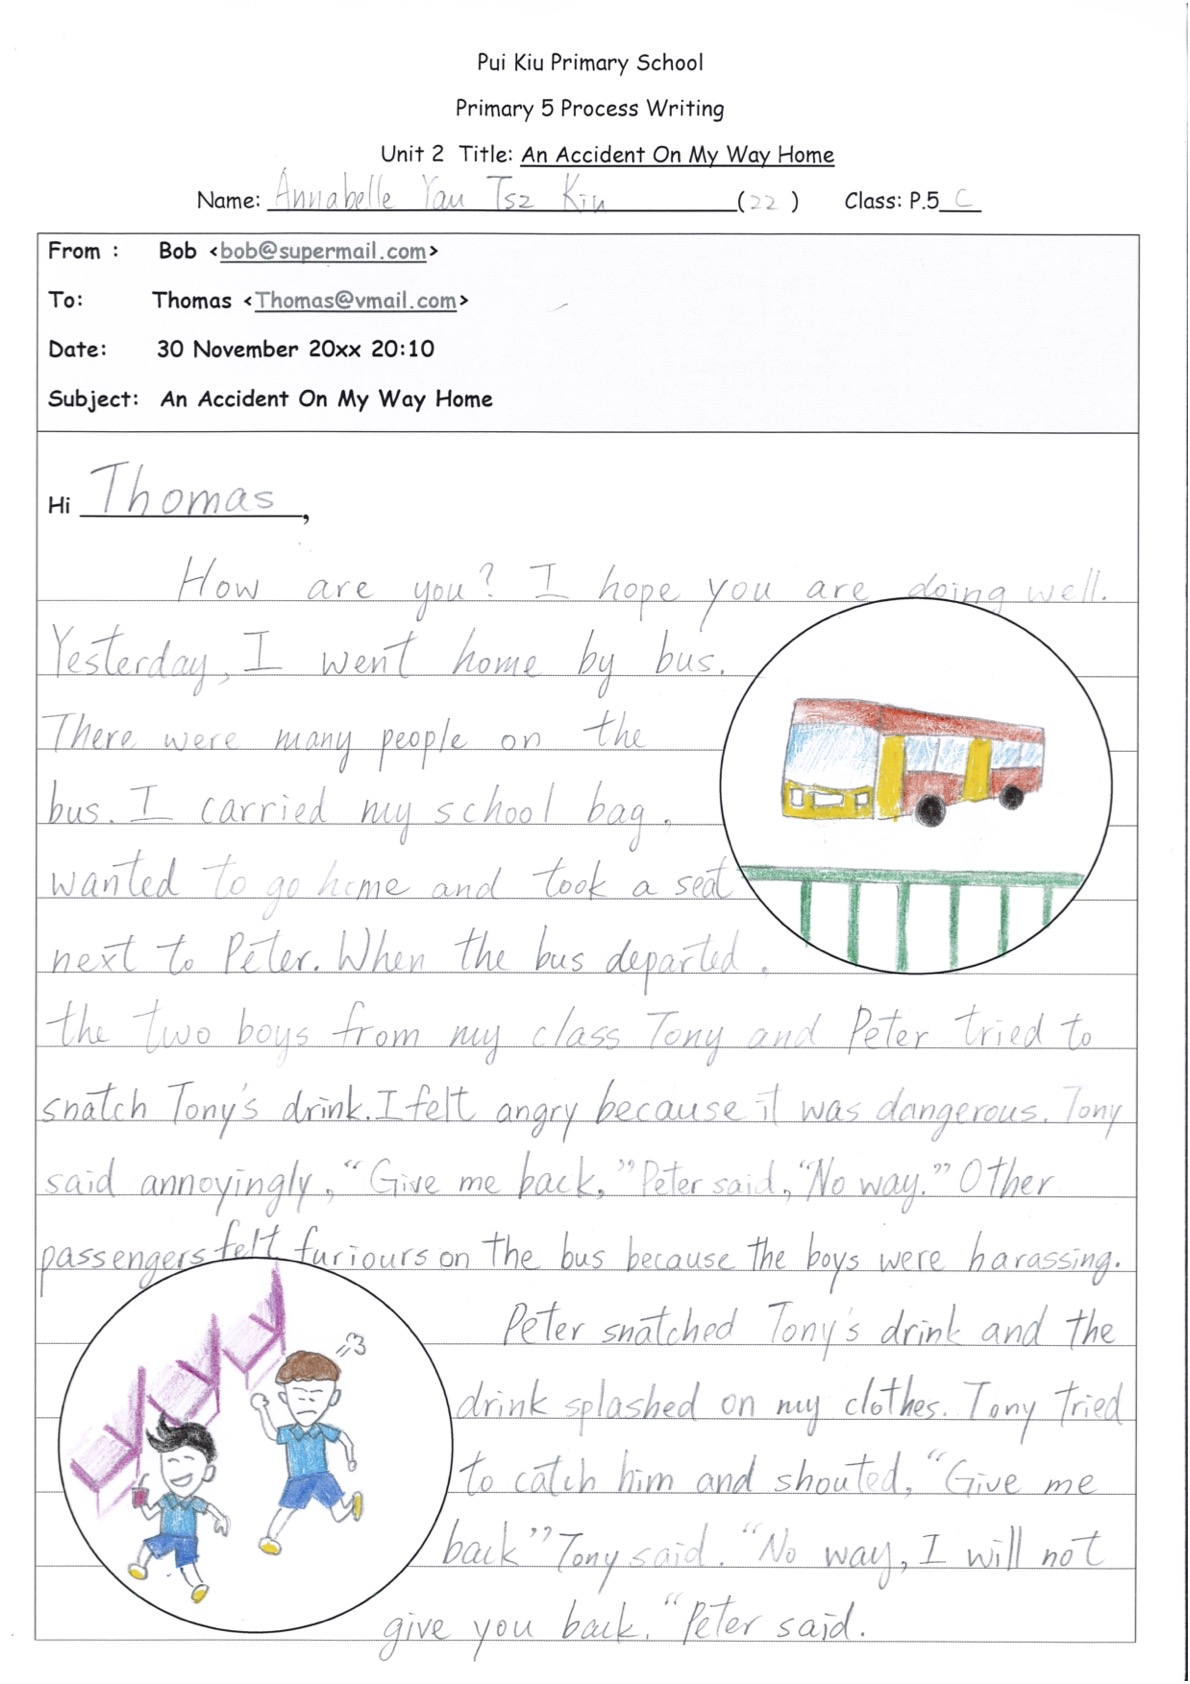 Pui Kiu Primary School
Primary 5 Process Writing
Unit 2 Title: An Accident On My Way Home
Name: Annabelle Yau Tsz Kiu (22) Class: P.5 C
From : Bob <bob@supermail.com>
To: Thomas <Thomas@vmail.com>
Date: 30 November 20xx 20:10
Subject: An Accident On My Way Home
Hi Thomas,
How are you? I hope you are doing well.
Yesterday, I went home by bus.
There were many people on the
bus. I carried my school bag,
wanted to go home and took a seat
next to Peter. When the bus departed,
the two boys from my class Tony and Peter tried to
snatch Tony's drink. I felt angry because it was dangerous. Tony
said annoyingly, "Give me back," Peter said, "No way." Other
passengers felt furiours on the bus because the boys were harassing.
Peter snatched Tony's drink and the
drink splashed on my clothes. Tony tried
to catch him and shouted, "Give me
back" Tony said. "No way, I will not
give you back. "Peter said.